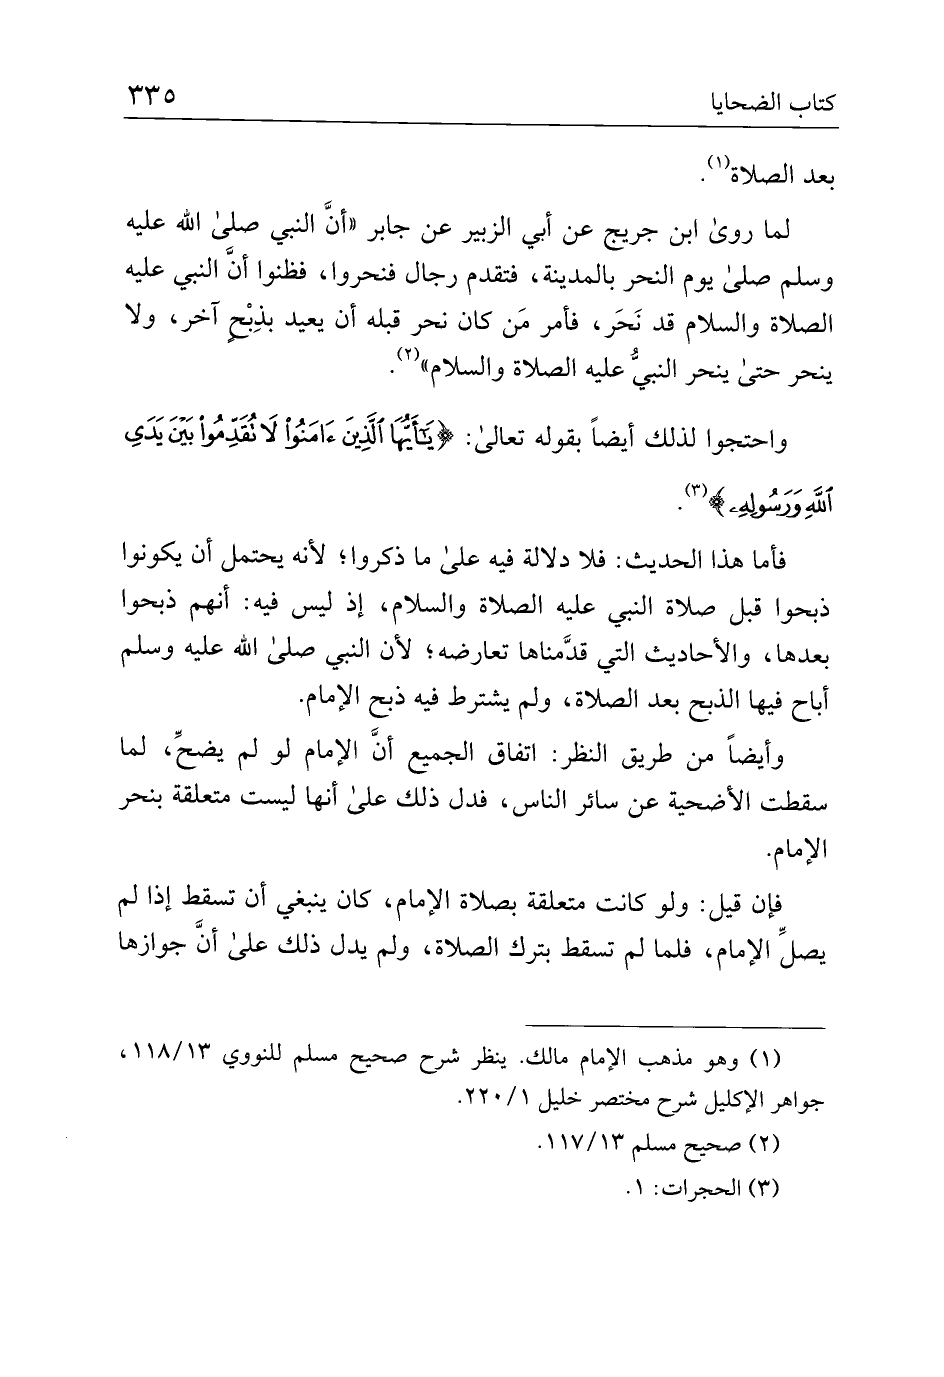 كتاب الضحايا ٣٣٥
بعد الصلاة(١).
لما روىٰ ابن جريج عن أبي الزبير عن جابر «أنَّ النبي صلىٰ الله عليه
وسلم صلىٰ يوم النحر بالمدينة، فتقدم رجال فنحروا، فظنوا أنَّ النبي عليه
الصلاة والسلام قد نَحَر، فأمر مَن كان نحر قبله أن يعيد بذِبْحٍ آخر، ولا
ينحر حتىٰ ينحر النبيُّ عليه الصلاة والسلام»(٢).
واحتجوا لذلك أيضاً بقوله تعالىٰ: ﴿يَٰٓأَيُّهَا ٱلَّذِينَ ءَامَنُوا۟ لَا تُقَدِّمُوا۟ بَيْنَ يَدَىِ
ٱللَّهِ وَرَسُولِهِۦ﴾(٣).
فأما هذا الحديث: فلا دلالة فيه علىٰ ما ذكروا؛ لأنه يحتمل أن يكونوا
ذبحوا قبل صلاة النبي عليه الصلاة والسلام، إذ ليس فيه: أنهم ذبحوا
بعدها، والأحاديث التي قدَّمناها تعارضه؛ لأن النبي صلىٰ الله عليه وسلم
أباح فيها الذبح بعد الصلاة، ولم يشترط فيه ذبح الإمام.
وأيضاً من طريق النظر: اتفاق الجميع أنَّ الإمام لو لم يضحِّ، لما
سقطت الأضحية عن سائر الناس، فدل ذلك علىٰ أنها ليست متعلقة بنحر
الإمام.
فإن قيل: ولو كانت متعلقة بصلاة الإمام، كان ينبغي أن تسقط إذا لم
يصلِّ الإمام، فلما لم تسقط بترك الصلاة، ولم يدل ذلك علىٰ أنَّ جوازها
(١) وهو مذهب الإمام مالك. ينظر شرح صحيح مسلم للنووي ١١٨/١٣،
جواهر الإكليل شرح مختصر خليل ٢٢٠/١.
(٢) صحيح مسلم ١١٧/١٣.
(٣) الحجرات: ١.